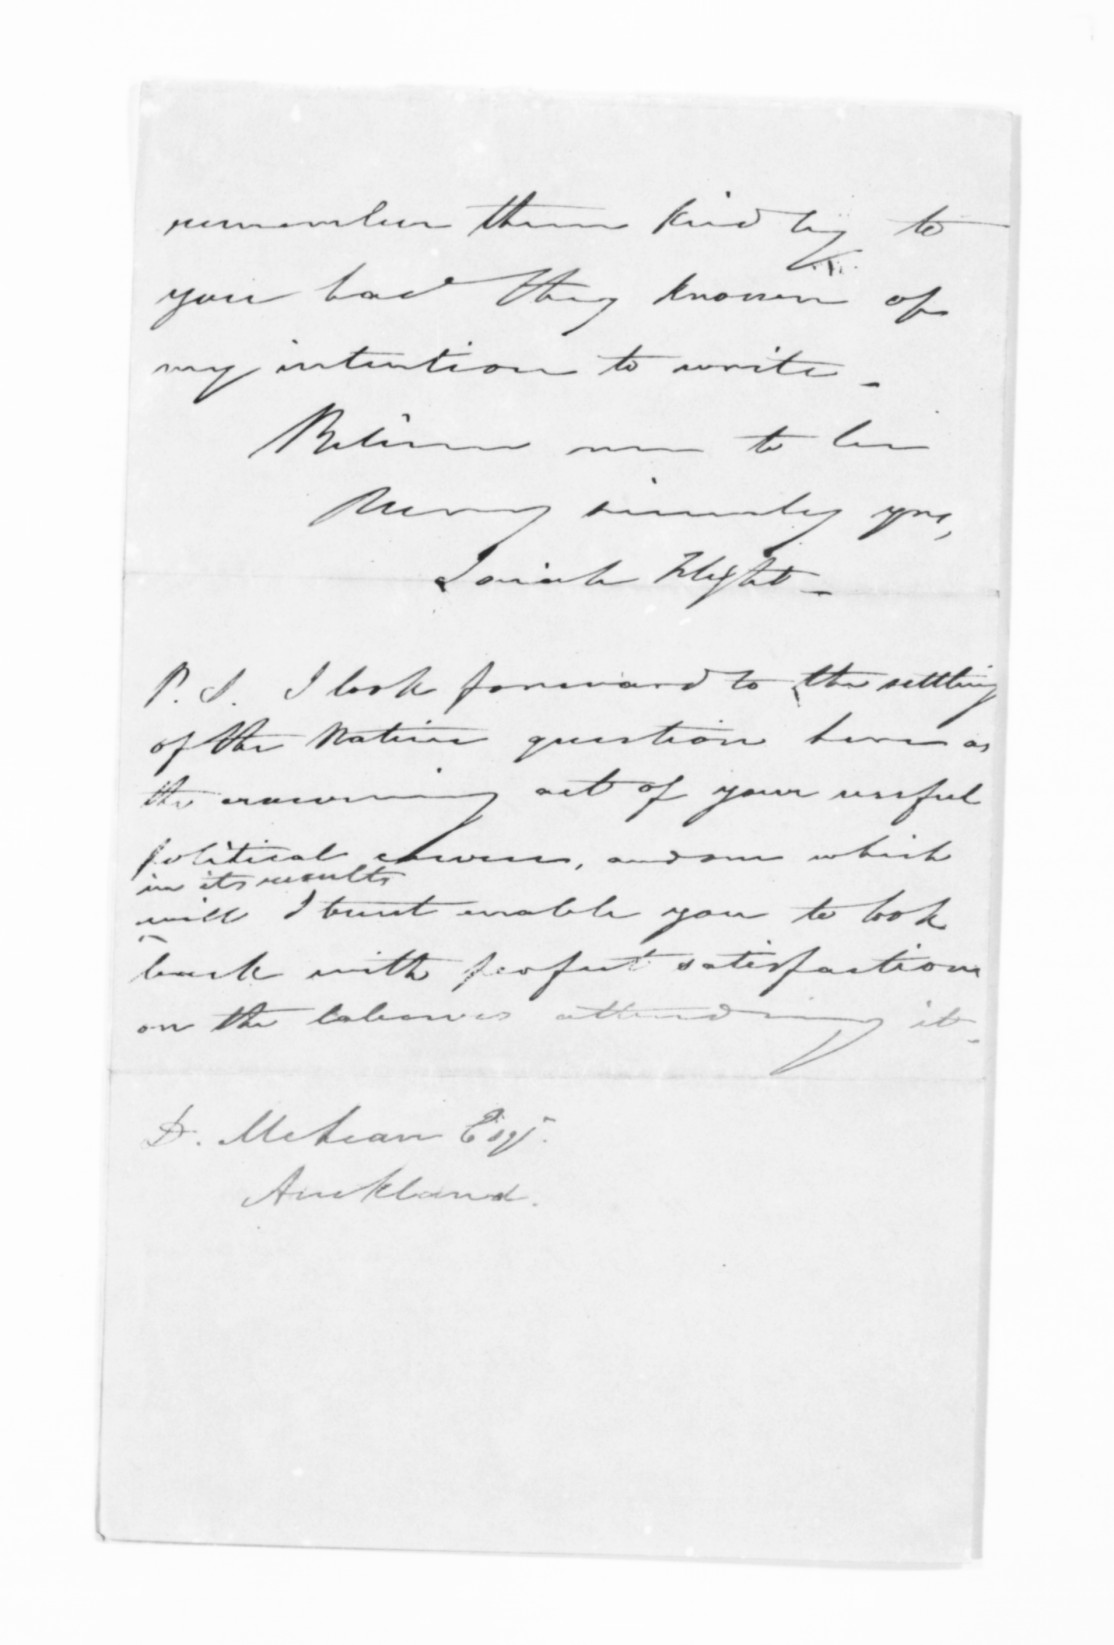 remember them kindly to
you had they known of
my intention to write _
Believe me to be
Very sincerely yrs,
Josiah Flight _
P. S. I look forward to the settling
of the Native question here as
the crowning act of your useful
political career, and one which
in its results
will I trust enable you to look
back with perfect satisfaction
on the labours attending it _
D. McLean Esqr.
Auckland.